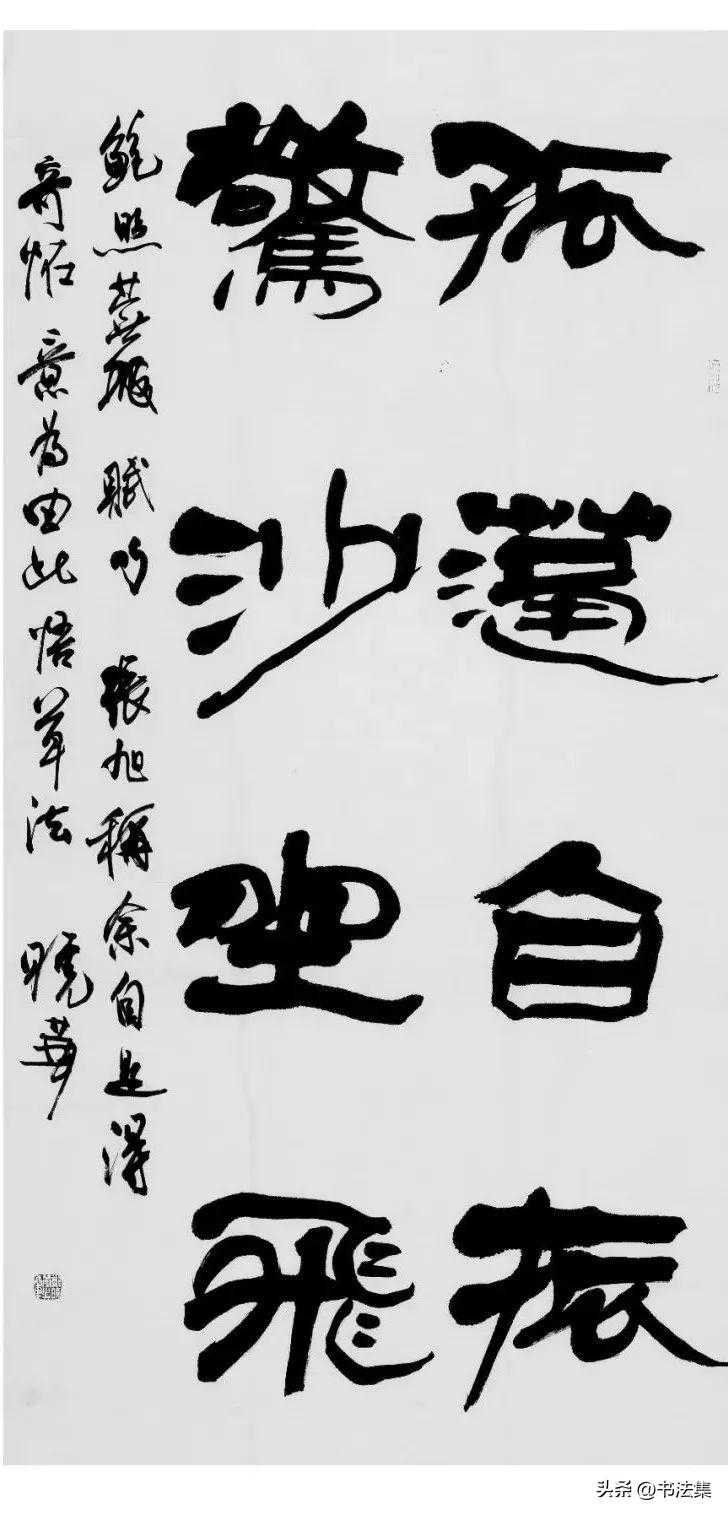 孤蓬自振
驚沙坐飛
鮑照蕪城賦句 張旭稱余自是得
奇怪意為由此悟草法 曉華
头条 @书法集